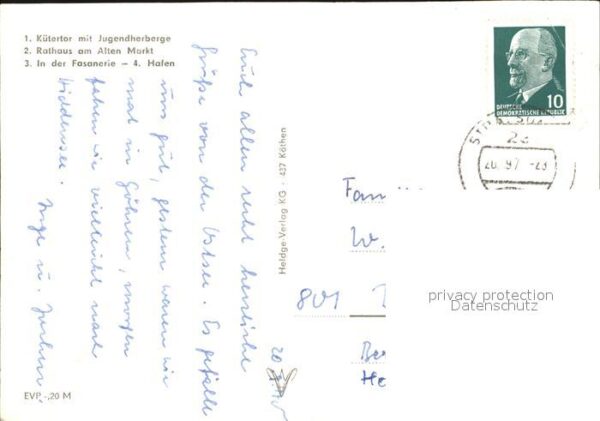 1. Kütertor mit Jugendherberge
2. Rathaus am Alten Markt
3. In der Fasanerie – 4. Hafen
Euch allen recht herzliche
Grüße von der Ostsee. Es gefällt
uns gut, gestern waren wir
mal in Göhren, morgen
fahren wir vielleicht nach
Hiddensee.
Inge u.
EVP -,20 M
Heldge-Verlag KG · 437 Köthen
10
DEUTSCHE
DEMOKRATISCHE REPUBLIK
Fam
W.
801
privacy protection
Datenschutz